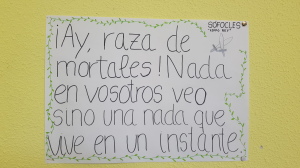 SÓFOCLES
"EDIPO REY"
¡Ay, raza de
mortales! Nada
en vosotros veo
sino una nada que
vive en un instante